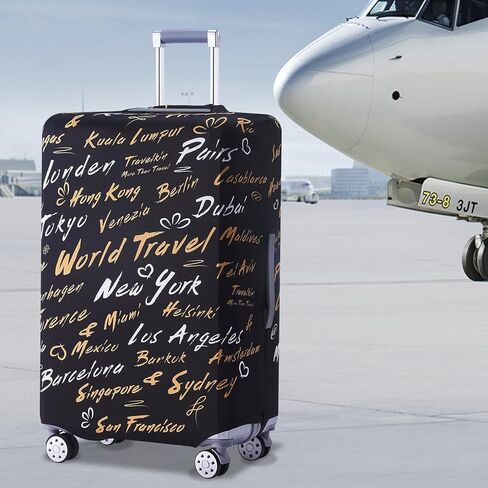 Kuala Lumpur
Londen
Travelkin
More Than Travel
Pairs
Casablanca
Hong Kong
Berlin
Tokyo
Venezia
Dubai
Maldives
World Travel
Tel Aviv
New York
Travelkin
More Than Travel
Miami
Helsinki
Mexico
Los Angeles
Barcelona
Bankok
Amsterdam
Singapore & Sydney
San Francisco
73-8 3JT